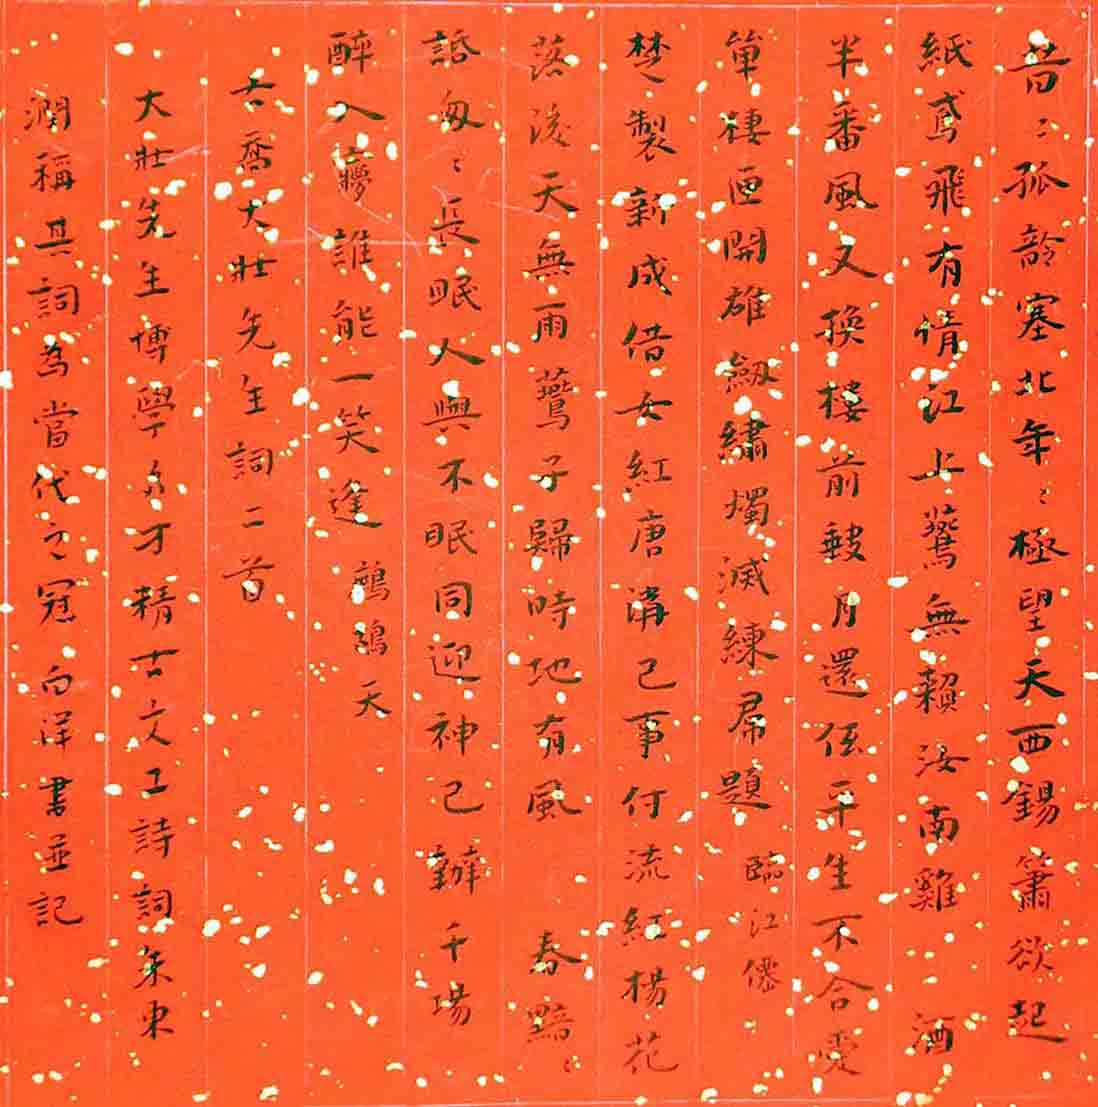 昔〻孤塞北年〻極望天西錫簫欲起
紙鳶飛有情江上鷰無賴汝南雞 酒
半番風又換樓前月還係平生不合
單棲匣開雄劔繡燭滅練帬題 臨江僊
楚製新成借女紅唐溝已事付流紅楊花
落後天無雨鷰子歸時地有風 春黯〻
話匆〻長眠人與不眠同迎神已辦千場
醉入夢誰能一笑逢 鷓鴣天
右喬大壯先生詞二首
大壯先生博學多才精古文工詩詞朱東
潤稱其詞為當代之冠向洋書並記